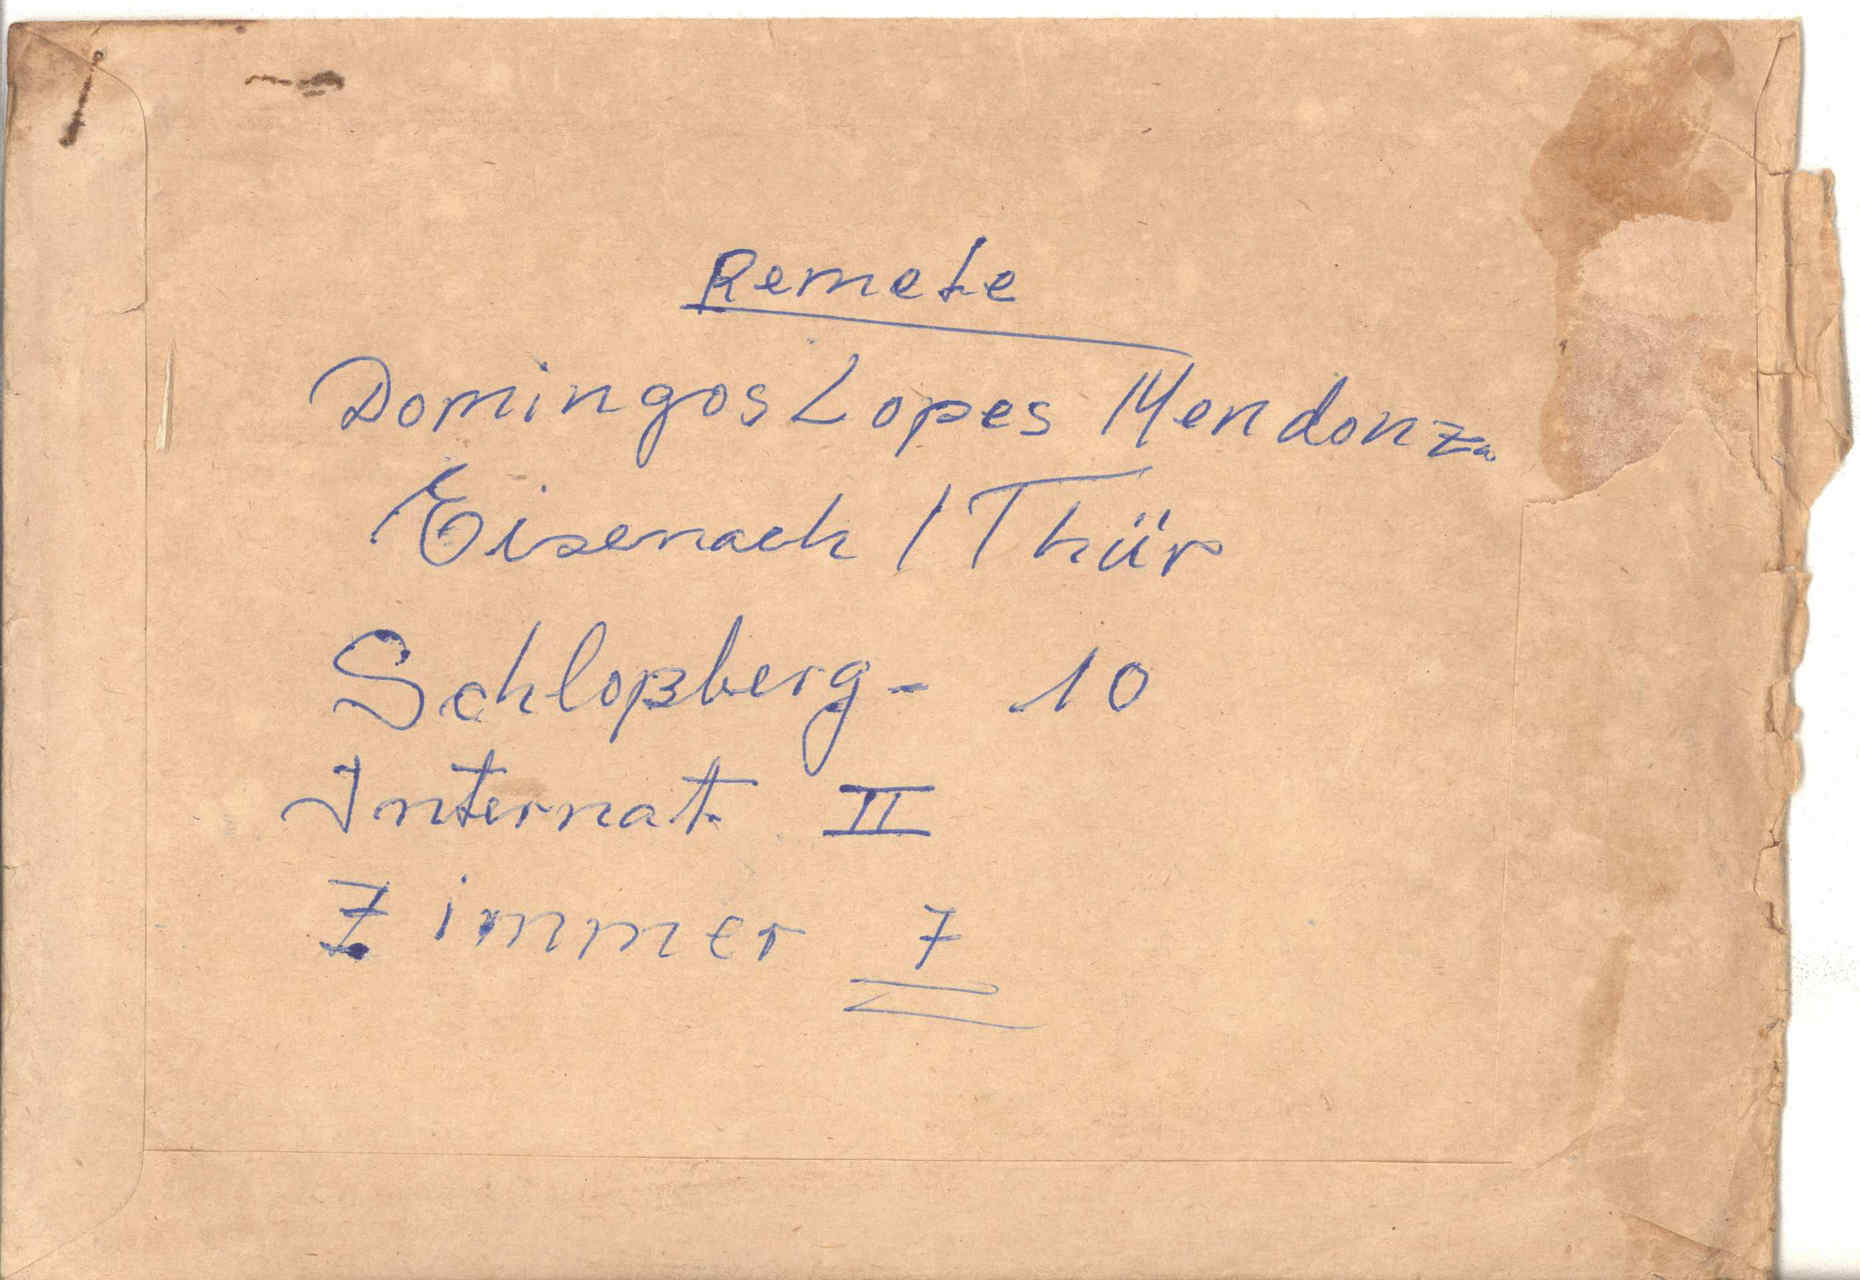 Remete
Domingos Lopes Mendonza
Eisenach / Thür
Schloßberg - 10
Internat II
Zimmer 7